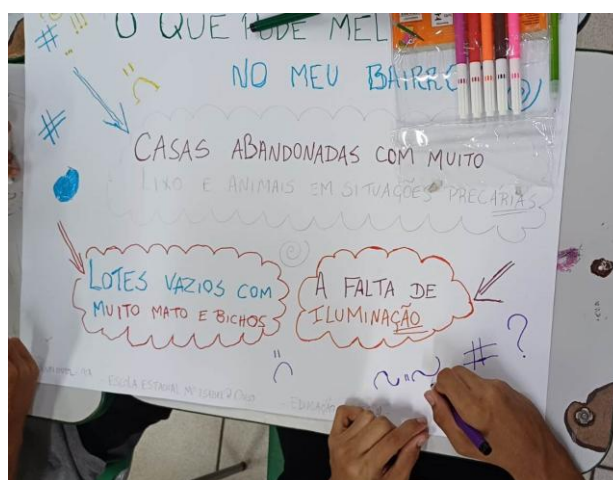 O QUE PODE MEL
NO MEU BAIRRO
CASAS ABANDONADAS COM MUITO
LIXO E ANIMAIS EM SITUAÇÕES PRECÁRIAS.
LOTES VAZIOS COM
MUITO MATO E BICHOS
A FALTA DE
ILUMINAÇÃO
- ESCOLA ESTADUAL
- EDUCAÇÃO